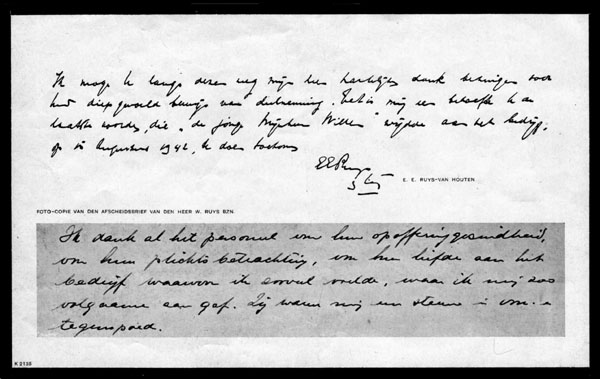 Ik mag U langs dezen weg mijn hartelijken dank betuigen voor
het diepgevoeld bewijs van deelneming. Het is mij een behoefte U de
laatste woorden, die "de jonge Mijnheer Willem" wijdde aan het bedrijf,
op Augustus 1942, te doen toekomen
EERuys
E. E. RUYS-VAN HOUTEN
FOTO-COPIE VAN DEN AFSCHEIDSBRIEF VAN DEN HEER W. RUYS BZN.
Ik dank al het personeel voor hun opofferingsgezindheid,
voor hun plichtsbetrachting, voor hun liefde aan het
bedrijf waarvan ik zooveel voelde, waar ik mij zoo
volgaarne aan gaf. Zij waren mij een steun in voor- en
tegenspoed.
K 2135